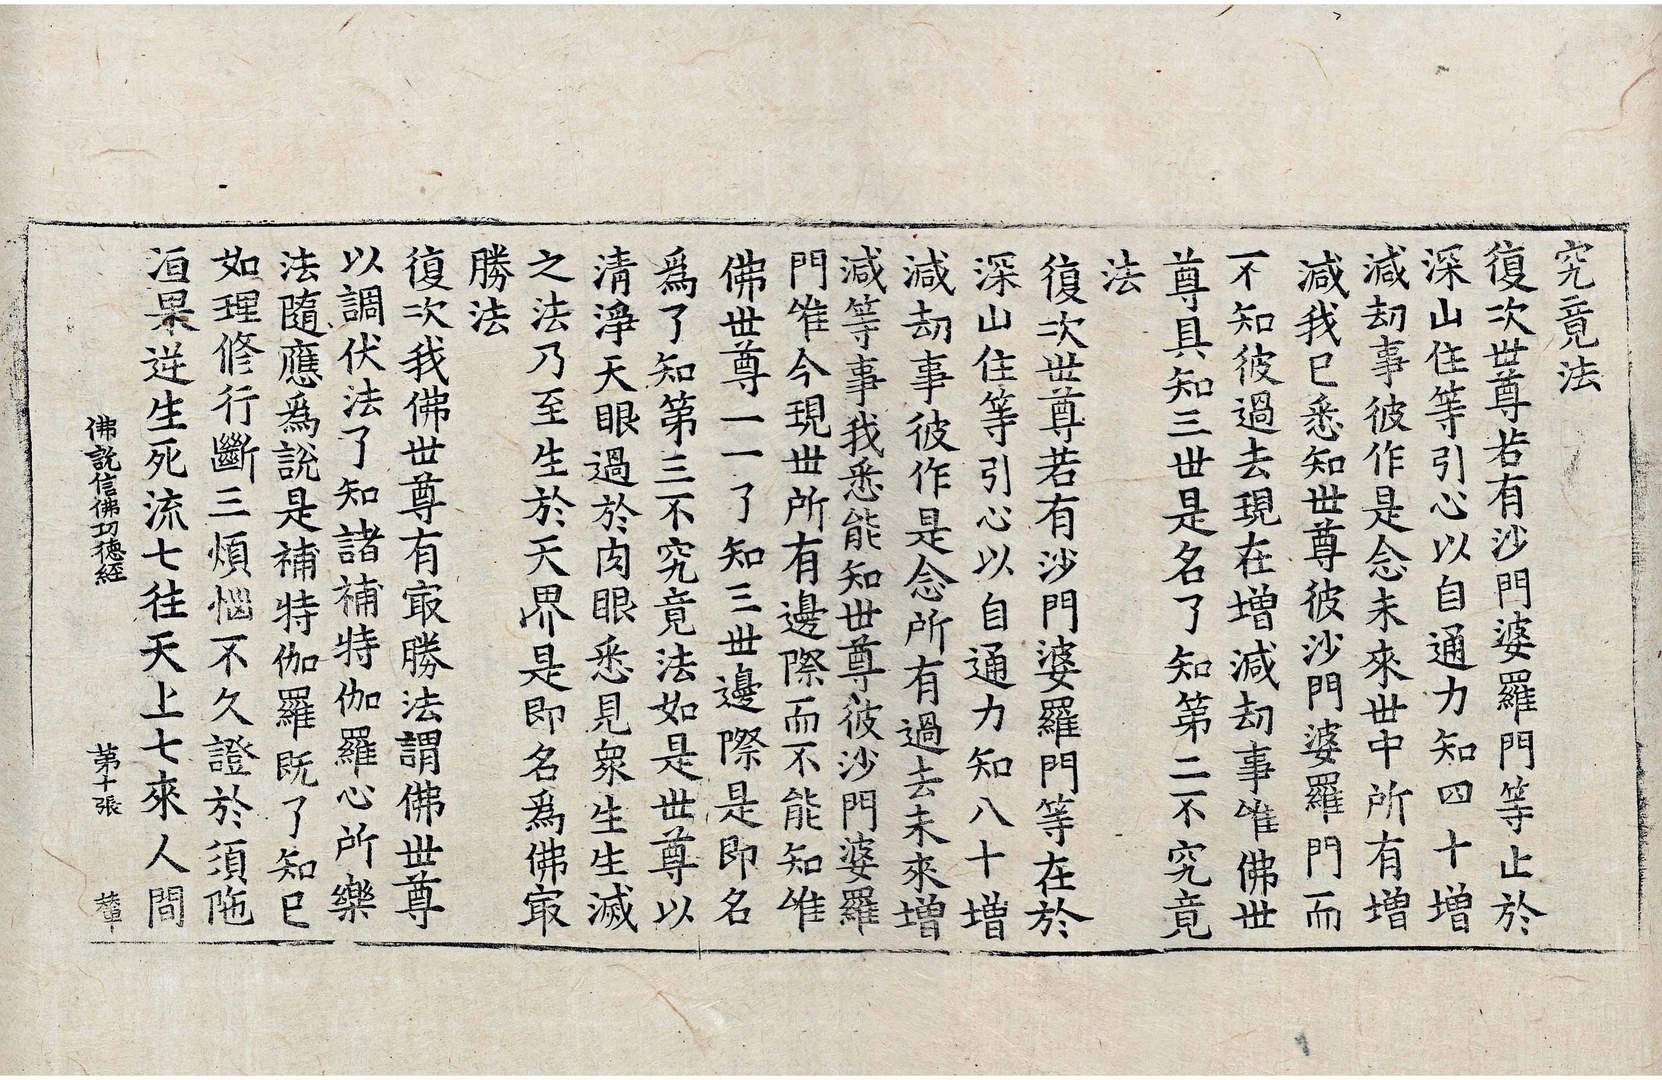 究竟法
復次世尊若有沙門婆羅門等止於
深山住等引心以自通力知四十增
減劫事彼作是念未來世中所有增
減我已悉知世尊彼沙門婆羅門而
不知彼過去現在增減劫事唯佛世
尊具知三世是名了知第二不究竟
法
復次世尊若有沙門婆羅門等在於
深山住等引心以自通力知八十增
減劫事彼作是念所有過去未來增
減等事我悉能知世尊彼沙門婆羅
門唯今現世所有邊際而不能知唯
佛世尊一一了知三世邊際是即名
爲了知第三不究竟法如是世尊以
清淨天眼過於肉眼悉見衆生生滅
之法乃至生於天界是即名爲佛㝡
勝法
復次我佛世尊有㝡勝法謂佛世尊
以調伏法了知諸補特伽羅心所樂
法隨應爲說是補特伽羅既了知已
如理修行斷三煩惱不久證於須陁
洹果逆生死流七往天上七來人間
佛說信佛功德經 第十張 輦